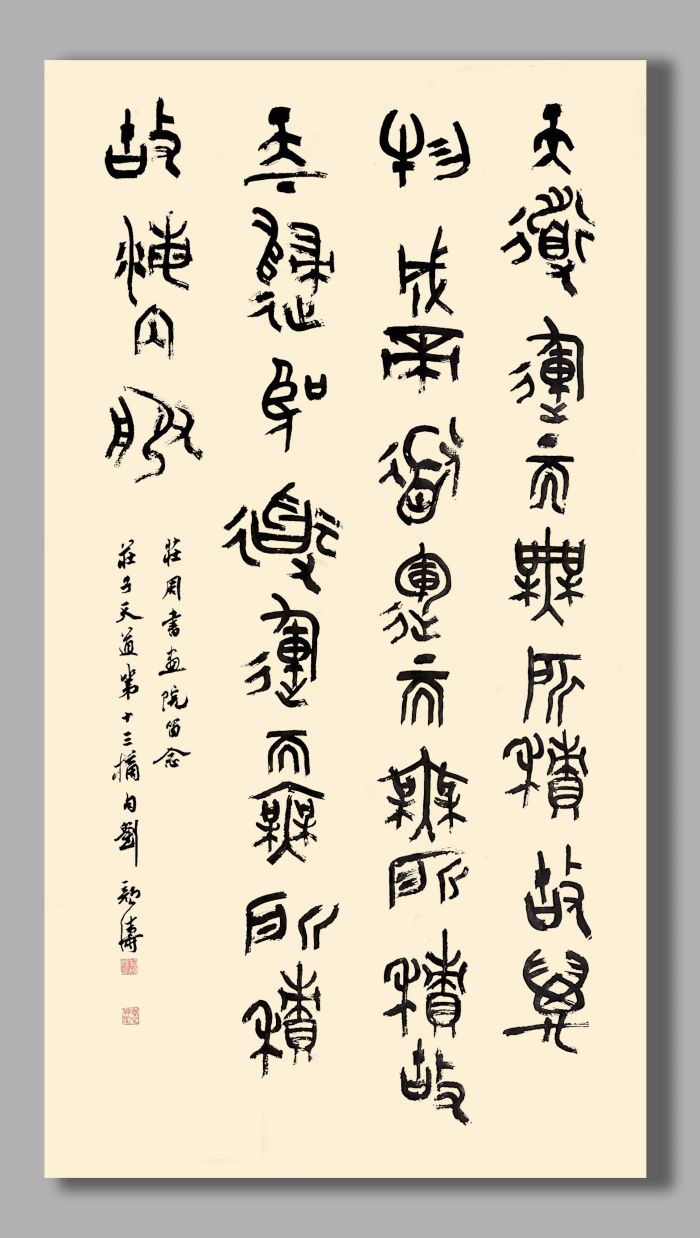 天道運而無所積故萬
物成帝道運而無所積故
天下歸聖道運而無所積
故海內服
莊周書畫院留念
莊子天道第十三摘句劉濤